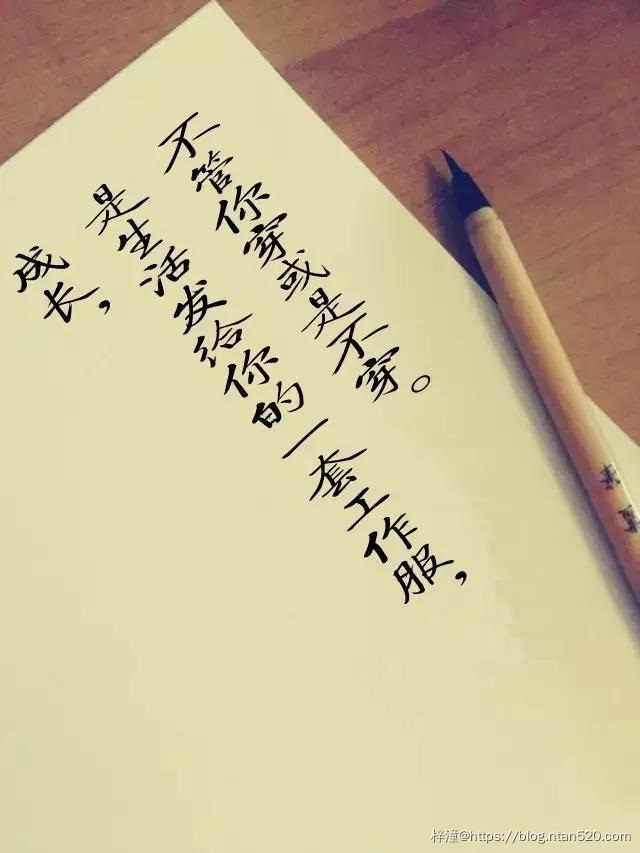 成长，
是生活发给你的一套工作服，
不管你穿或是不穿。
梓潼@https://blog.ntan520.com